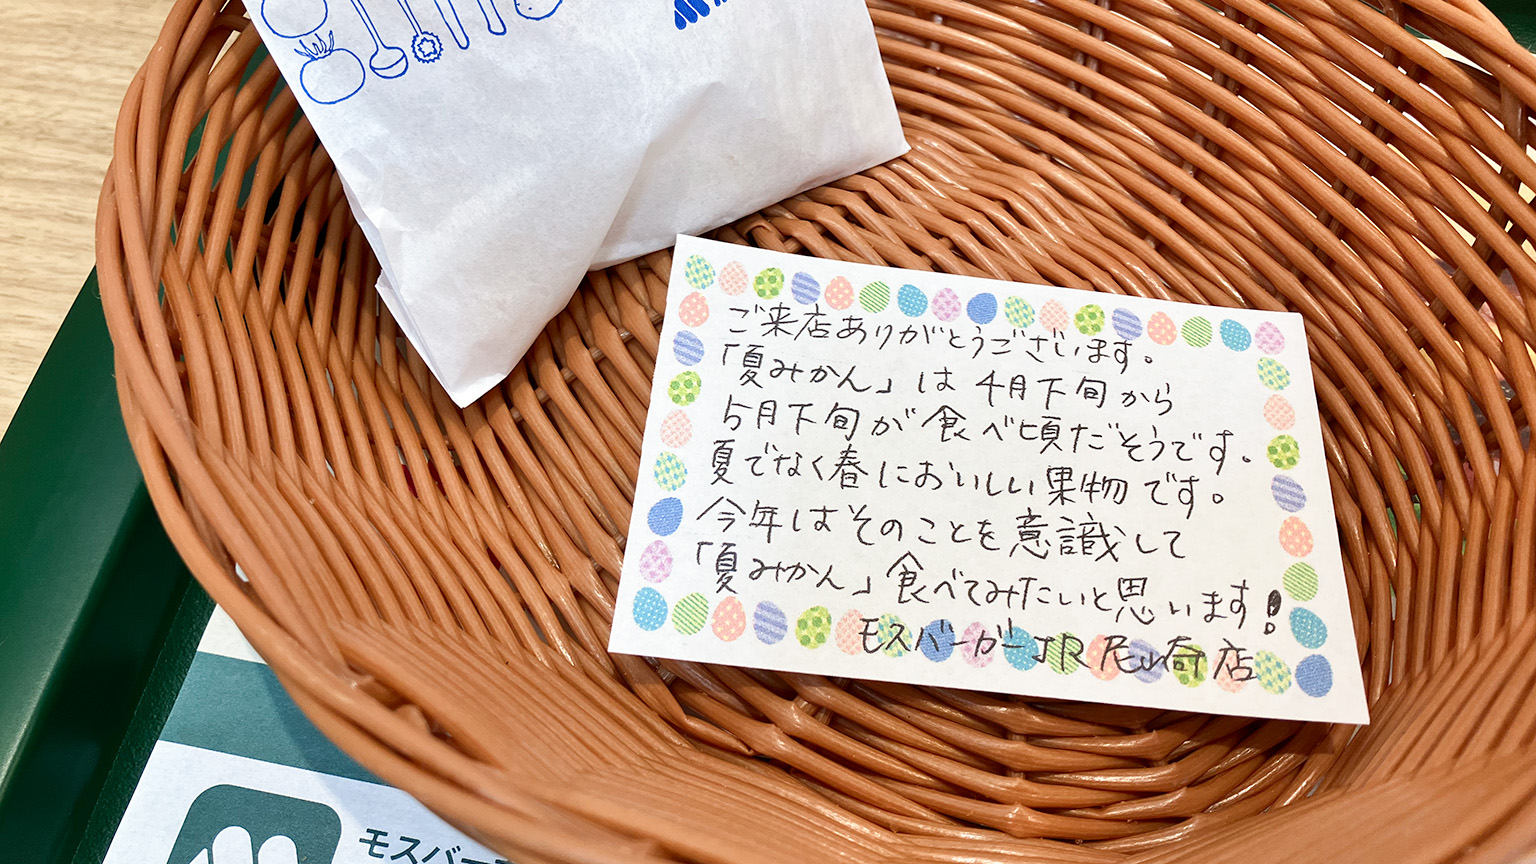 ご来店ありがとうございます。
「夏みかん」は4月下旬から
5月下旬が食べ頃だそうです。
夏でなく春においしい果物です。
今年はそのことを意識して
「夏みかん」食べてみたいと思います!
モスバーガーJR尼崎店
モスバー